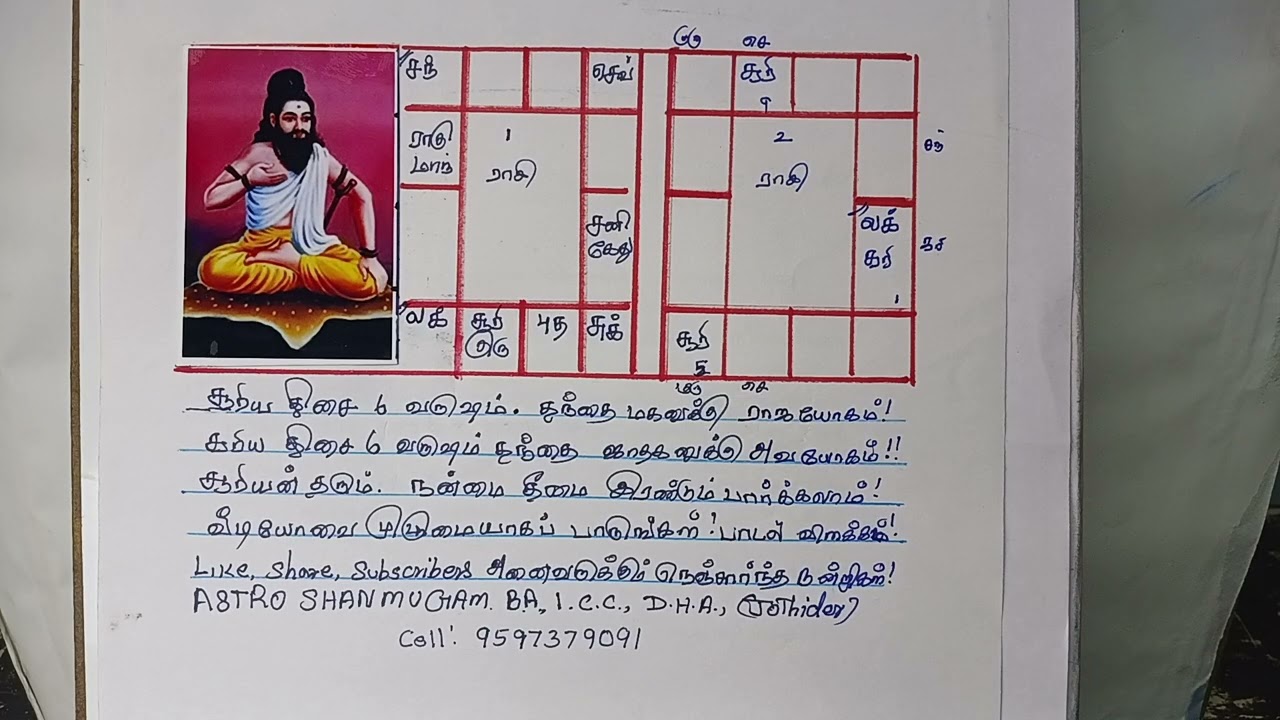 குரு செ
சந்
செவ்
சூரி
9
ராகு
மாந்
1
ராசி
2
ராசி
சனி
கேது
லக்
சூரி
1
லக்
சூரி
குரு
புத
சுக்
சூரி
5
குரு செ
சூரிய திசை 6 வருஷம். தந்தை மகனுக்கு ராஜயோகம்!
சூரிய திசை 6 வருஷம் தந்தை ஜாதகனுக்கு அவயோகம்!!
சூரியன் தரும். நன்மை தீமை இரண்டும் பார்க்கலாம்!
வீடியோவை முழுமையாகப் பாருங்கள்! பாடல் விளக்கம்!
Like, Share, Subscribers அனைவருக்கும் நெஞ்சார்ந்த நன்றிகள்!
ASTRO SHANMUGAM. B.A., I.C.C., D.H.A., (Jothider)
Cell: 9597379091